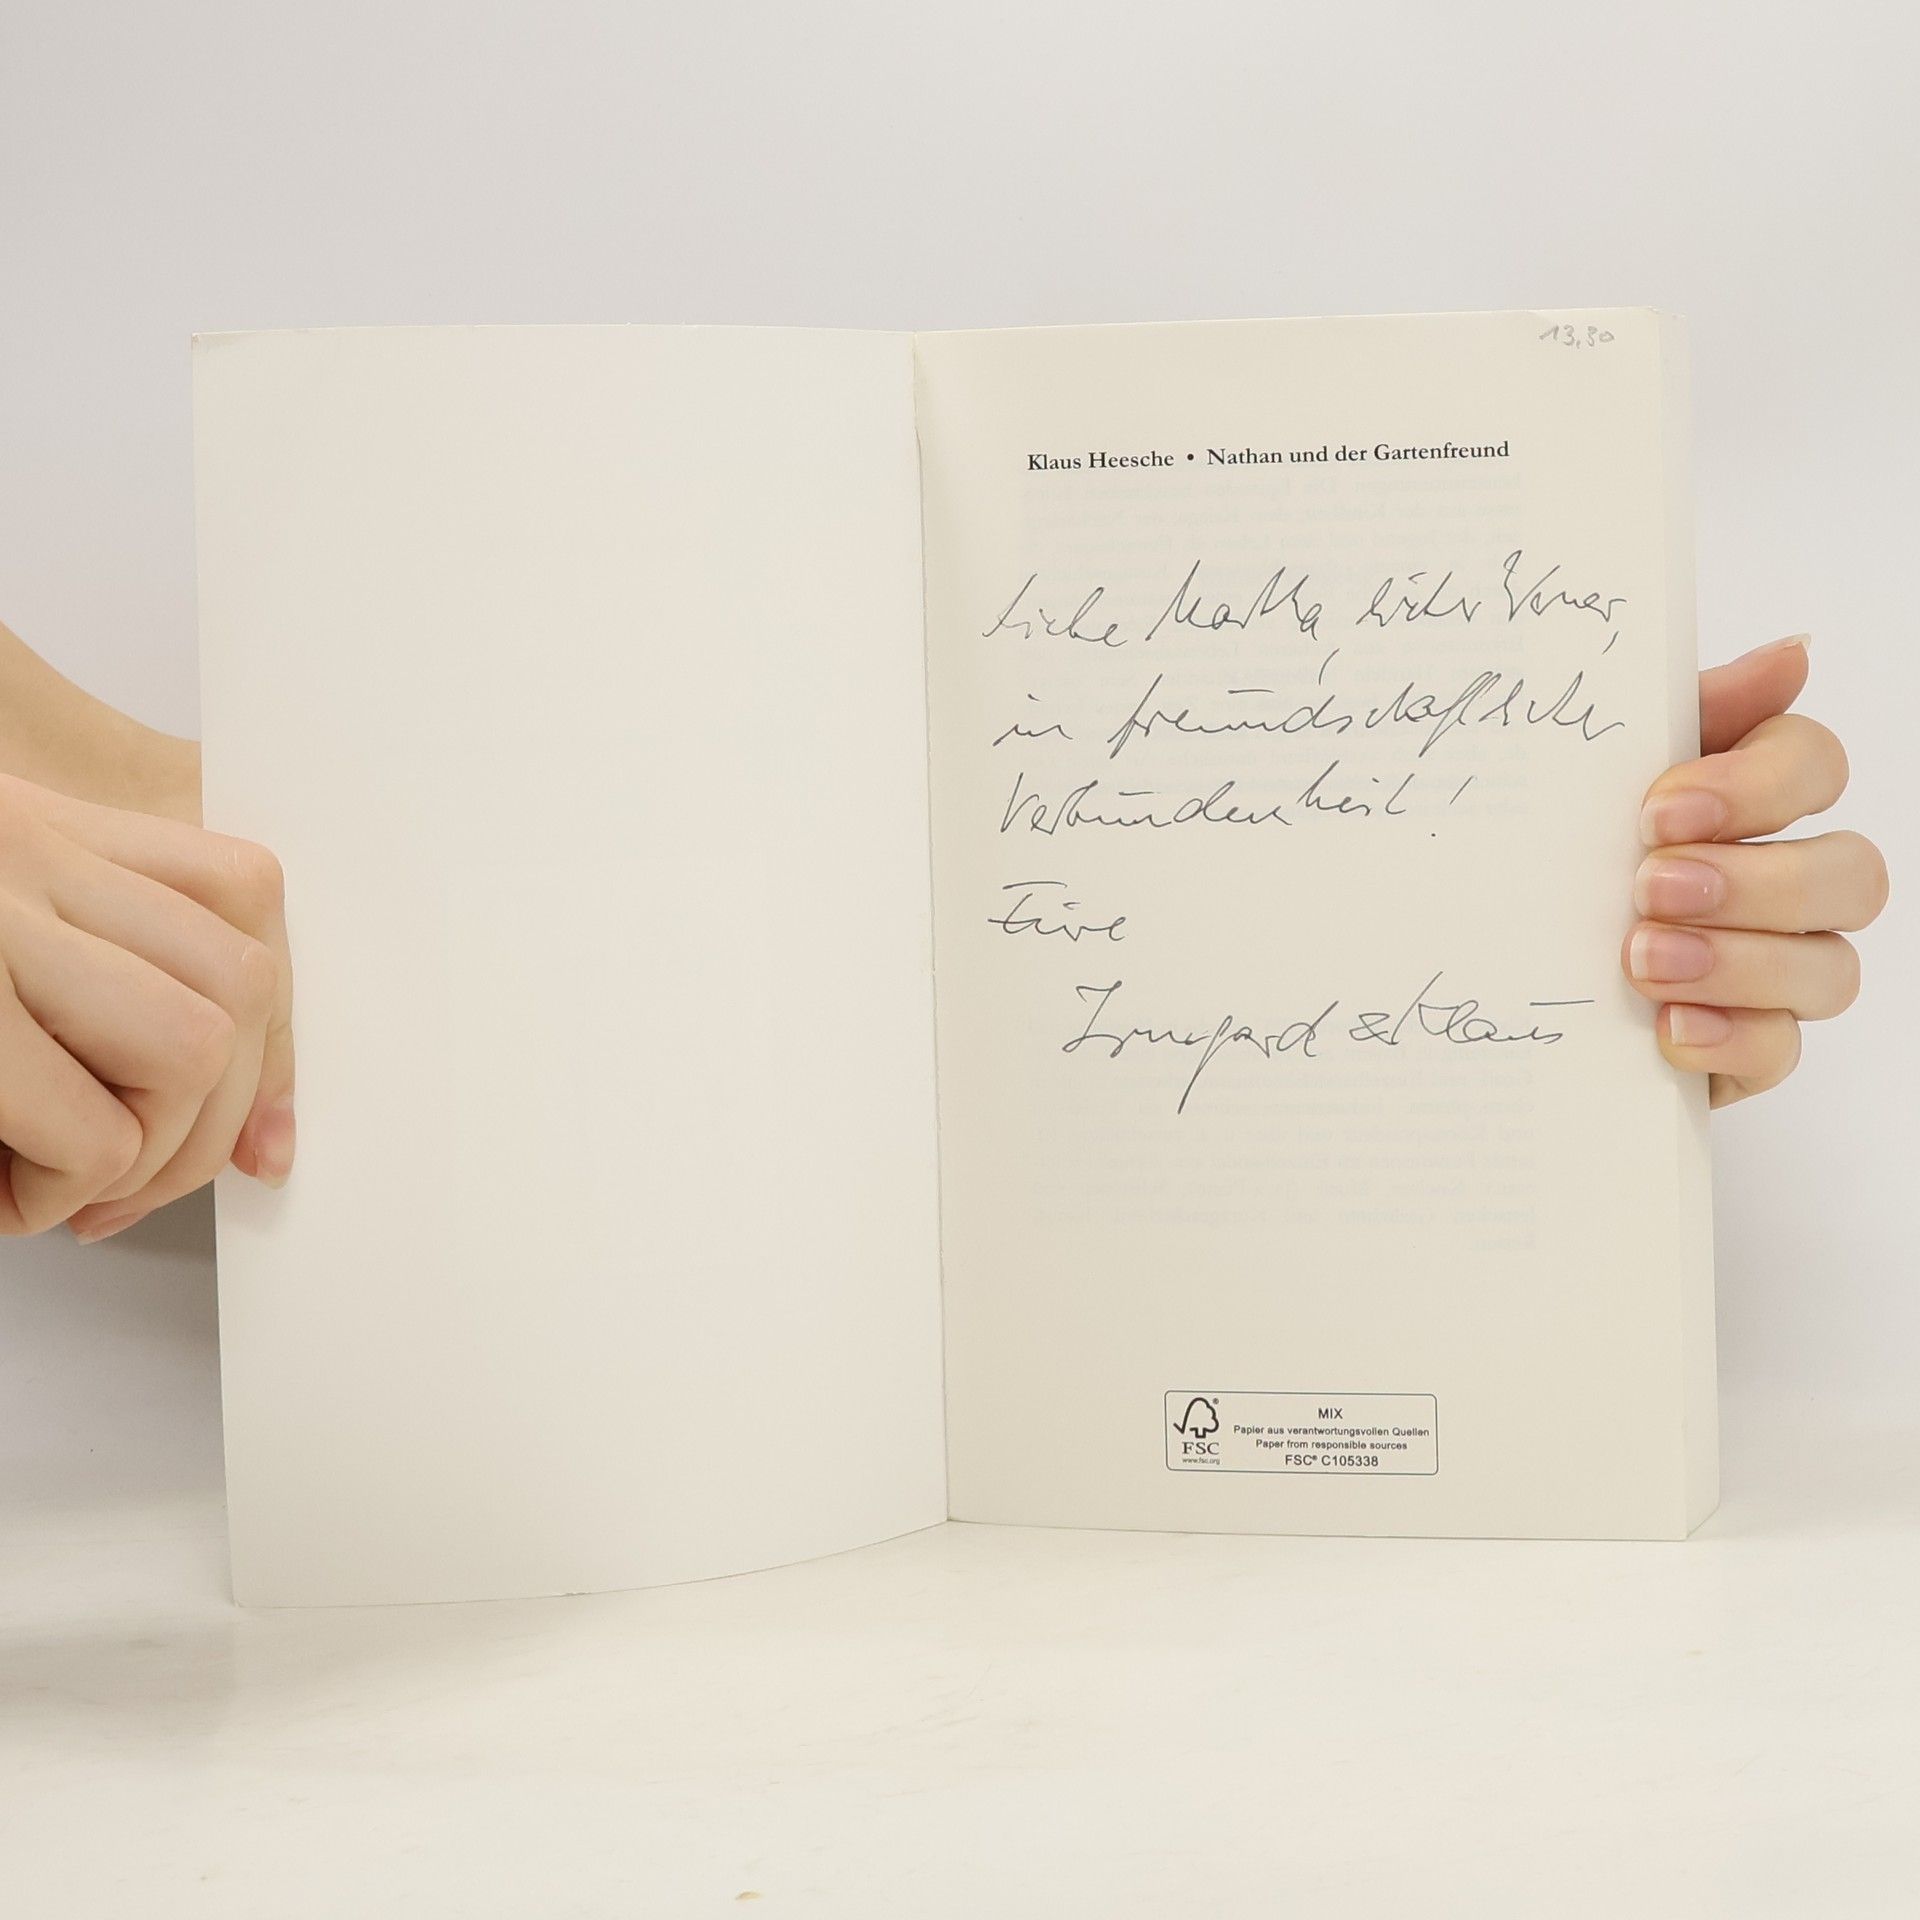 13,30
Klaus Heesche • Nathan und der Gartenfreund
Liebe Martha, lieber Werner,
in freundschaftlicher
Verbundenheit!
Eure
Irmgard & Klaus
FSC®
www.fsc.org
MIX
Papier aus verantwortungsvollen Quellen
Paper from responsible sources
FSC® C105338